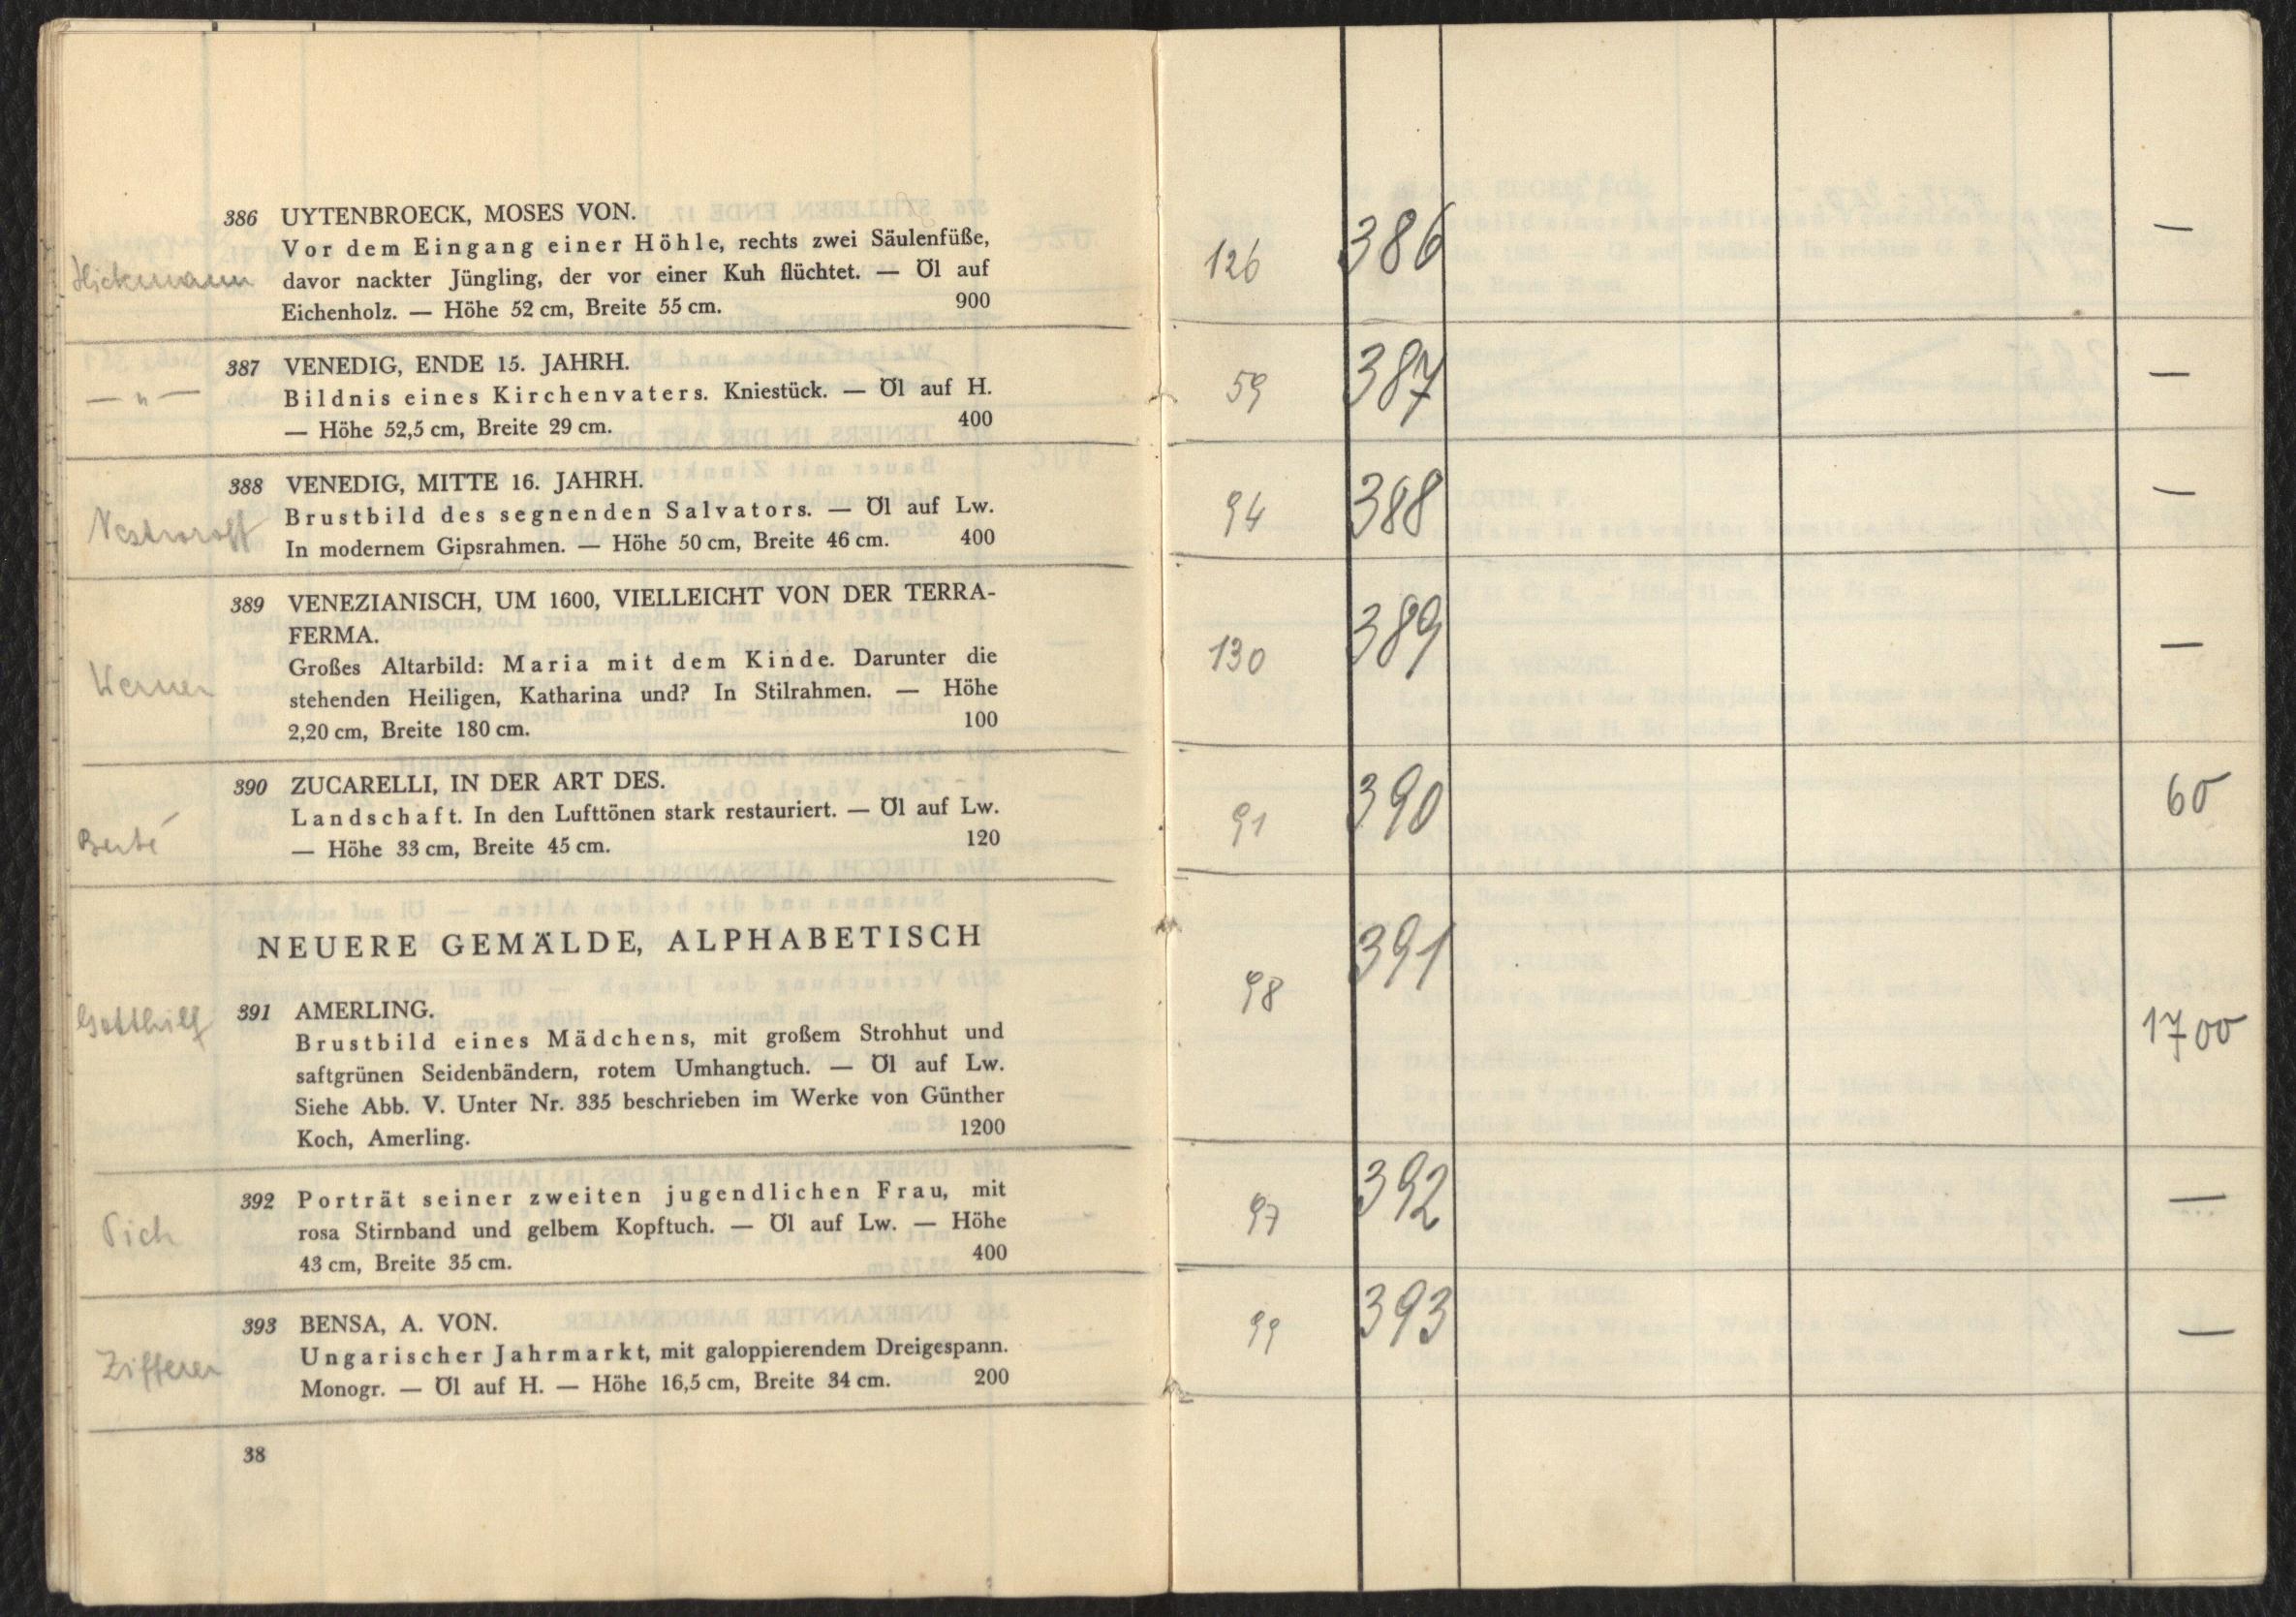 386 UYTENBROECK, MOSES VON.
Vor dem Eingang einer Höhle, rechts zwei Säulenfüße,
Hickmann davor nackter Jüngling, der vor einer Kuh flüchtet. — Öl auf
Eichenholz. — Höhe 52 cm, Breite 55 cm. 900
387 VENEDIG, ENDE 15. JAHRH.
— " — Bildnis eines Kirchenvaters. Kniestück. — Öl auf H.
— Höhe 52,5 cm, Breite 29 cm. 400
388 VENEDIG, MITTE 16. JAHRH.
Brustbild des segnenden Salvators. — Öl auf Lw.
In modernem Gipsrahmen. — Höhe 50 cm, Breite 46 cm. 400
389 VENEZIANISCH, UM 1600, VIELLEICHT VON DER TERRA-
FERMA.
Großes Altarbild: Maria mit dem Kinde. Darunter die
Werner stehenden Heiligen, Katharina und? In Stilrahmen. — Höhe
2,20 cm, Breite 180 cm. 100
390 ZUCARELLI, IN DER ART DES.
Landschaft. In den Lufttönen stark restauriert. — Öl auf Lw.
Berté — Höhe 33 cm, Breite 45 cm. 120
NEUERE GEMÄLDE, ALPHABETISCH
Gotthilf 391 AMERLING.
Brustbild eines Mädchens, mit großem Strohhut und
saftgrünen Seidenbändern, rotem Umhangtuch. — Öl auf Lw.
Siehe Abb. V. Unter Nr. 335 beschrieben im Werke von Günther
Koch, Amerling. 1200
392 Porträt seiner zweiten jugendlichen Frau, mit
Pich rosa Stirnband und gelbem Kopftuch. — Öl auf Lw. — Höhe
43 cm, Breite 35 cm. 400
393 BENSA, A. VON.
Zifferer Ungarischer Jahrmarkt, mit galoppierendem Dreigespann.
Monogr. — Öl auf H. — Höhe 16,5 cm, Breite 34 cm. 200
38
126 386 —
59 387 —
94 388 —
130 389 —
91 390 60
98 391 1700
97 392 —
99 393 —